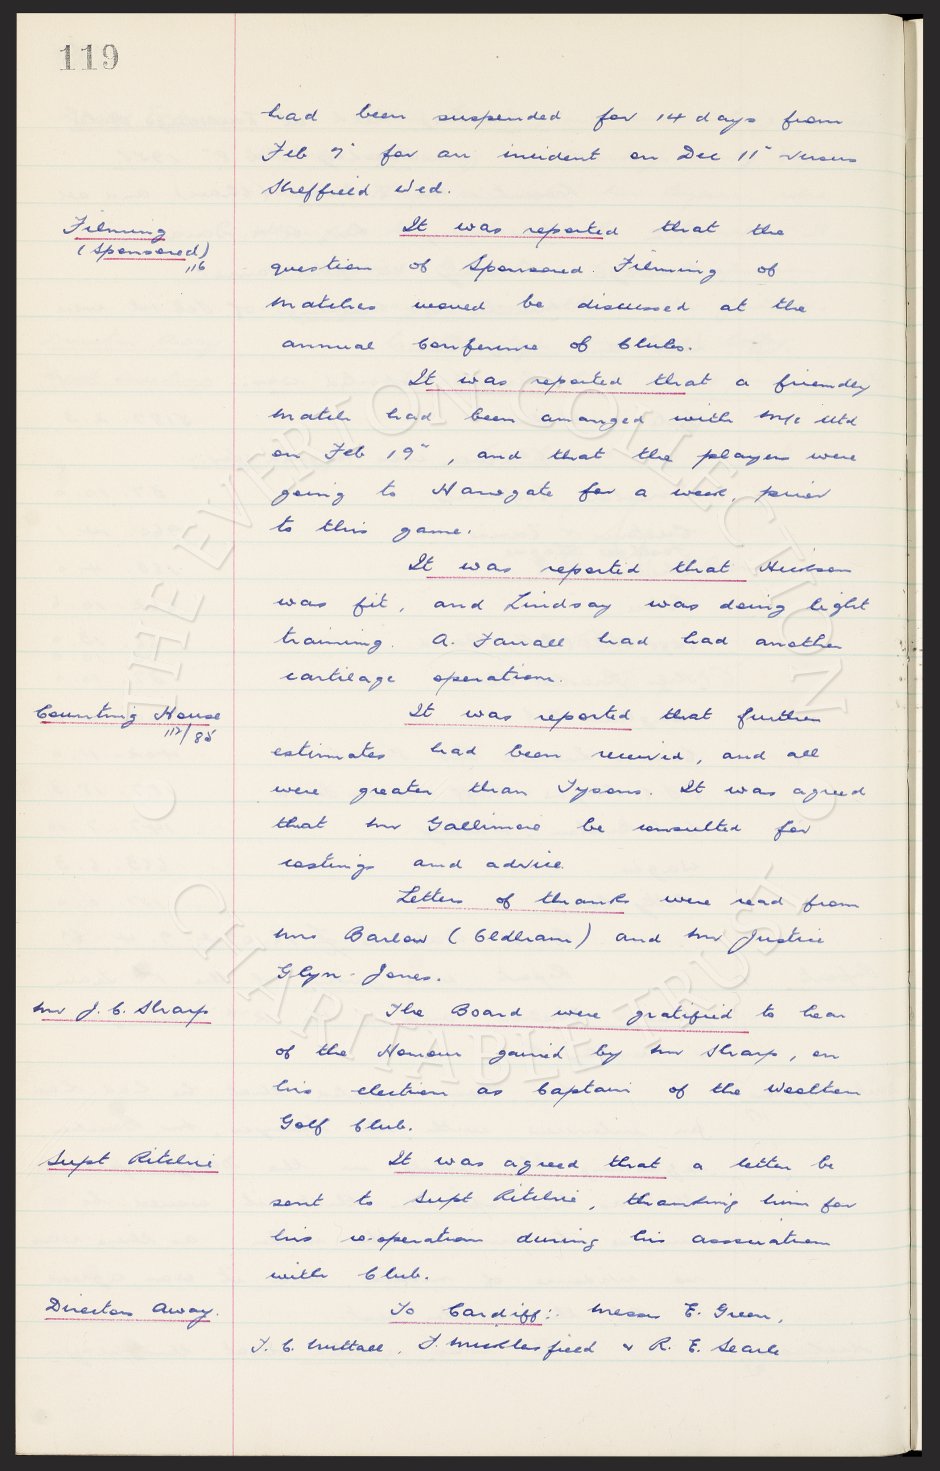 119
had been suspended for 14 days from
Feb 7" for an incident on Dec 11" versus
Sheffield Wed.
Filming
(Sponsored)
116
It was reported that the
question of Sponsored Filming of
matches would be discussed at the
annual Conference of Clubs.
It was reported that a friendly
match had been arranged with M/c Utd
on Feb 19", and that the players were
going to Harrogate for a week, prior
to this game.
It was reported that Hickson
was fit, and Lindsay was doing light
training. A. Farrall had had another
cartilage operation.
Counting House
112/85
It was reported that further
estimates had been received, and all
were greater than Tysons. It was agreed
that Mr Gallimore be consulted for
costings and advice.
Letters of thanks were read from
Mrs Barlow (Oldham) and Mr Justice
Glyn-Jones.
Mr J. C. Sharp
The Board were gratified to hear
of the Honour gained by Mr Sharp, on
his election as Captain of the Woolton
Golf Club.
Supt Ritchie
It was agreed that a letter be
sent to Supt Ritchie, thanking him for
his co-operation during his association
with Club.
Directors Away.
To Cardiff: Messrs E. Green,
T. C. Nuttall, F. Micklesfield & R. E. Searle
THE EVERTON COLLECTION
CHARITABLE TRUST